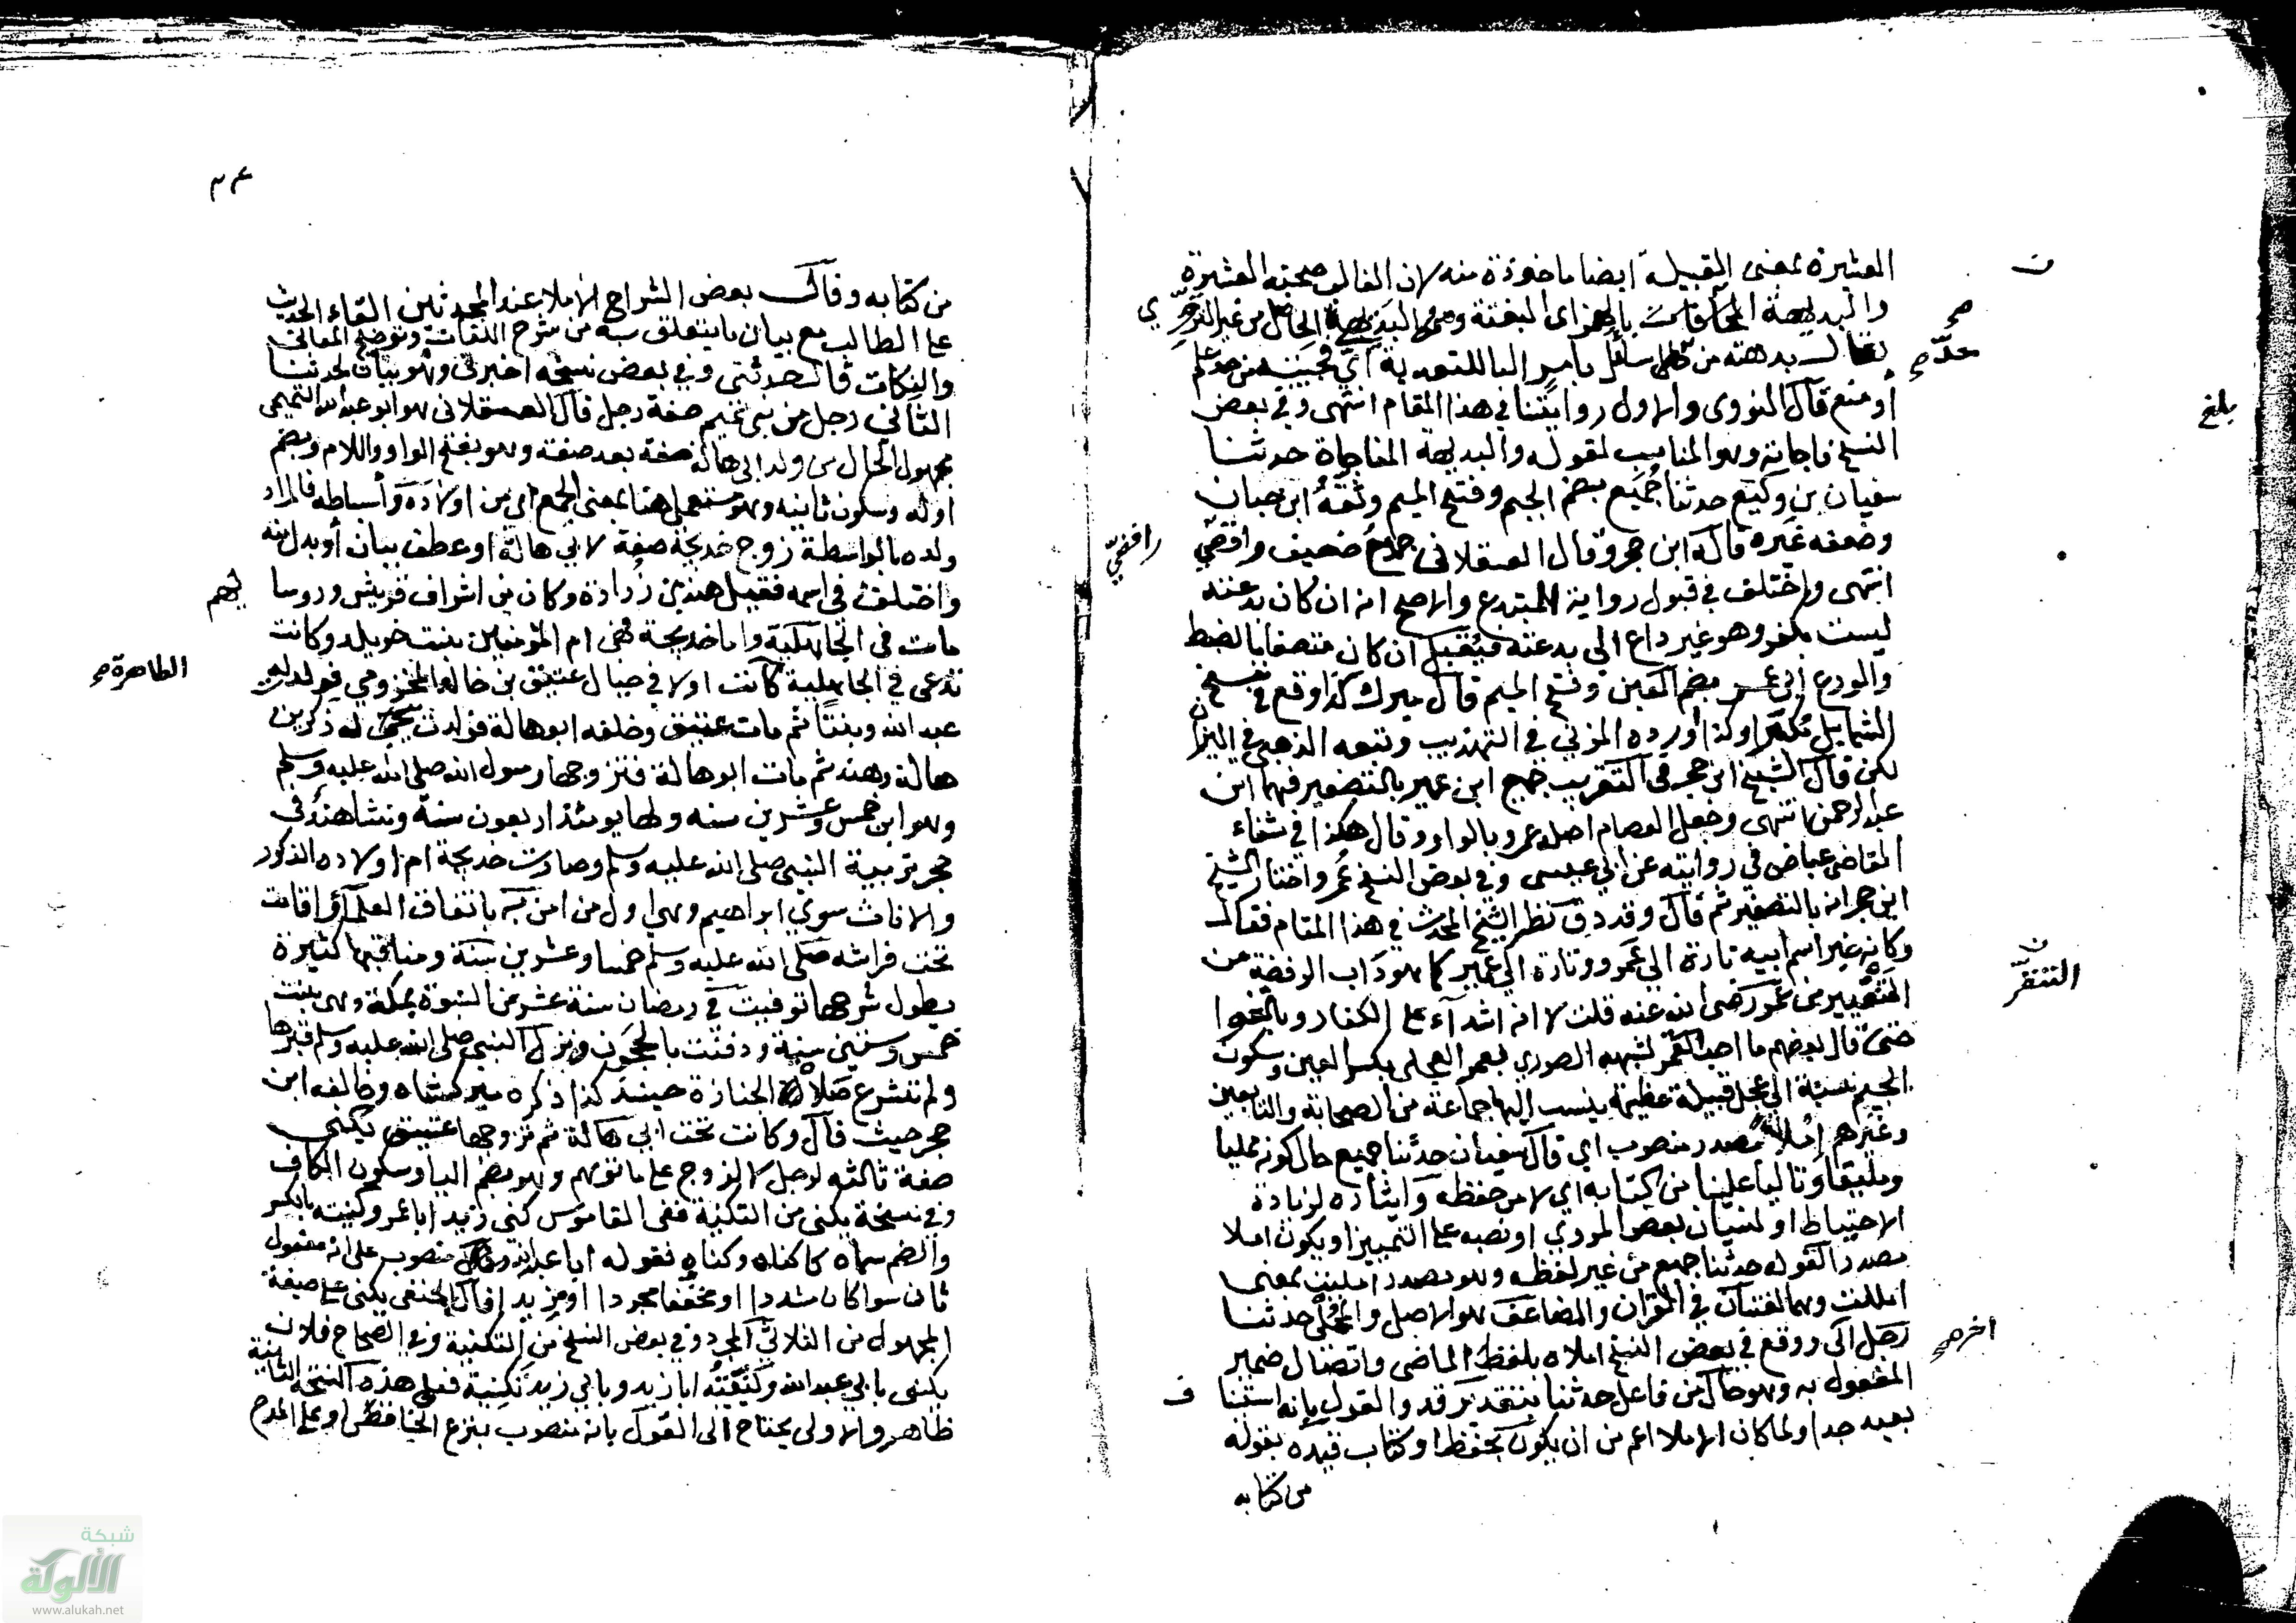 العشيرة بمعنى القبيلة ايضا ماخوذة منه لان الغالب صحبته العشيرة
والبديهة المفاجأة بالهمز اى البغتة البديهة الحاصل من غير التروي
يقال بدهته من باب سأل بامر البا للتعدية اي
او منع قال النووى والاول روايتنا في هذا المقام انتهى وفي بعض
النسخ فاجاته وهو المناسب لقوله والبديهة المفاجاة حدثنا
سفيان بن وكيع حدثنا جُمَيع بضم الجيم وفتح الميم وثقه ابن حبان
وضعفه غيره قاله ابن حجر وقال العسقلانى جميع ضعيف رافضي
انتهى واختلف في قبول رواية المبتدع والاصح انه ان كان بدعته
ليست بكفر وهو غير داع الى بدعته فيُقبل ان كان متصفا بالضبط
والورع ابن عمر بضم العين وفتح الميم قال ميرك كذا وقع في نسخ
الشمايل مكبرا وكذا اورده المزني في التهذيب وتبعه الذهبي في الميزان
لكن قال الشيخ ابن حجر في التقريب جميع ابن عمير بالتصغير فيهما ابن
عبد الرحمن انتهى وجعل العصام اصله عمرو بالواو وقال هكذا في شفاء
القاضى عياض في روايته عن ابي عيسى وفي بعض النسخ عُمر واختار الشيخ
ابن حجر انه بالتصغير ثم قال وقد دق نظر الشيخ المحدث في هذا المقام فقال
وكانه غير اسم ابيه تارة الى عمرو وتارة الى عمير كما هو دَاب الرفضة من
التغيير من عمر رضى الله عنه قلت لا انه اشدآء على الكفار وبالغوا
حتى قال بعضهم ما احب العمر لشبهه الصوري بعمر العجلى بكسر العين وسكون
الجيم نسبة الى عجل قبيلة عظيمة ينسب اليها جماعة من الصحابة والتابعين
وغيرهم إملاءً مصدر منصوب اي قال سفيان حدثنا جميع حال كونه ممليا
وملقيا وتاليا علينا من كتابه اي لا من حفظه وايثاره لزيادة
الاحتياط او لنسيان بعض المروي او نصبه على التمييز او يكون املا
مصدرا لقوله حدثنا جميع من غير لفظه وهو مصدر امليت بمعنى
امللت وهما لغتان في القران والمضاعف هو الاصل حدثنا
رجل الى ووقع في بعض النسخ املاه بلفظ الماضى واتصال ضمير
المفعول به وهو حال من فاعل حدثنا بتقدير قد والقول بانه استينا
بعيد جدا ولما كان الاملا اعم من ان يكون بحفظ او كتاب قيده بقوله
من كتابه
صح
بلغ
رافضيّ
ف
من كتابه وقال بعض الشراح الاملا عند المحدثين القاء الحديث
على الطالب مع بيان ما يتعلق به من شرح اللغات وتوضيح المعانى
والنكات قال حدثنى وفي بعض نسخه اخبرنى وهو بيان لحدثنا
الثاني رجل من بنى تميم صفة رجل قال العسقلانى هو ابو عبد الله التميمى
مجهول الحال من ولد ابى هالة صفة بعد صفة وهو بفتح الواو واللام وبضم
اوله وسكون ثانيه وهو مستعمل هنا بمعنى الجمع اي من اولاده وأسباطه فالمراد
ولده بالواسطة زوج خديجة صفة لابي هالة او عطف بيان أو بدل منه
واختلف في اسمه فقيل هند بن زُرارة وكان من اشراف قريش وروسا
ئهم
مات في الجاهلية واما خديجة فهى ام المؤمنين بنت خويلد وكانت
تدعى في الجاهلية كانت اولا في حبال عتيق بن خالد المخزومي فولدت له
الطاهرة صح
عبد الله وبنتًا ثم مات عتيق وخلفه ابو هالة فولدت له ذكرين
هالة وهند ثم مات ابو هالة فتزوجها رسول الله صلى الله عليه وسلم
وهو ابن خمس وعشرين سنه ولها يومئذ اربعون سنة ونشا هندُ في
حجر تربية النبى صلى الله عليه وسلم وصارت خديجة ام اولاده الذكور
والاناث سوي ابراهيم وهي اول من امن به باتفاق العلما واقامت
تحت فراشه صلى الله عليه وسلم خمسا وعشرين سنة ومناقبها كثيرة
يطول شرحها توفيت في رمضان سنة عشر من النبوة بمكة وهى بنت
خمس وستين سنة ودفنت بالحجون ونزل النبى صلى الله عليه وسلم قبرها
ولم تشرع صلاة الجنازة حينئذ كذا ذكره ميركشاه وخالفه ابن
حجر حيث قال وكانت تحت ابي هالة ثم تزوجها عتيق يكنى
صفة ثالثه لرجل لا لزوج على ما توهم وهو بضم اليا وسكون الكاف
وفي نسخة يكنى من التكنية ففى القاموس كنى زيد ابا عمرو كنيته بالكسر
والضم سماه كاكناه وكناه فقوله ابا عبد الله منصوب على انه مفعول
ثان سوا كان مشددا او مخففا مجردا او مزيدا قال الحنفى يكنى على صيغة
المجهول من الثلاثي المجرد وفي بعض النسخ من التكنية وفي الصحاح فلان
يكنى بابي عبد الله وكَنَّيْتُه ابا زيد وبابي زيد تكنية فعلى هذه النسخة الثانية
ظاهر والاولى يحتاج الى القول بانه منصوب بنزع الخافض او على المدح
شبكة
الألوكة
www.alukah.net